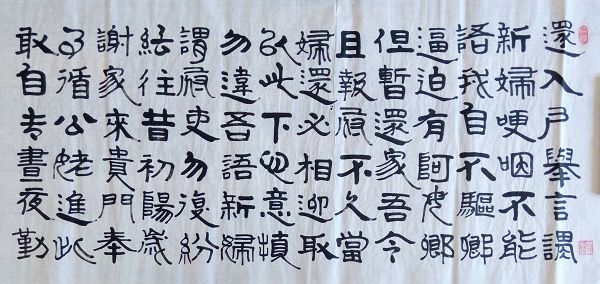 還入戶舉言謂
新婦哽咽不能
語我自不驅卿
逼迫有阿母卿
但暫還家吾今
且報府不久當
婦還必相迎取
以此下心意慎
勿違吾語新婦
謂府吏勿復紛
紜往昔初陽歲
謝家來貴門奉
循公姥進此
取自专晝夜勤